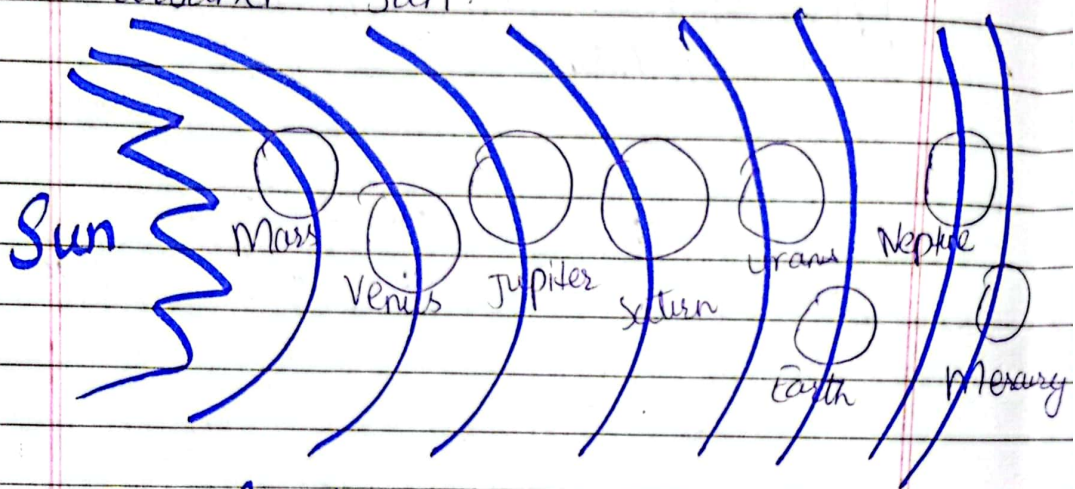 Sun
Sun
Mars
Venus
Jupiter
Saturn
Uranus
Neptue
Earth
Mercury